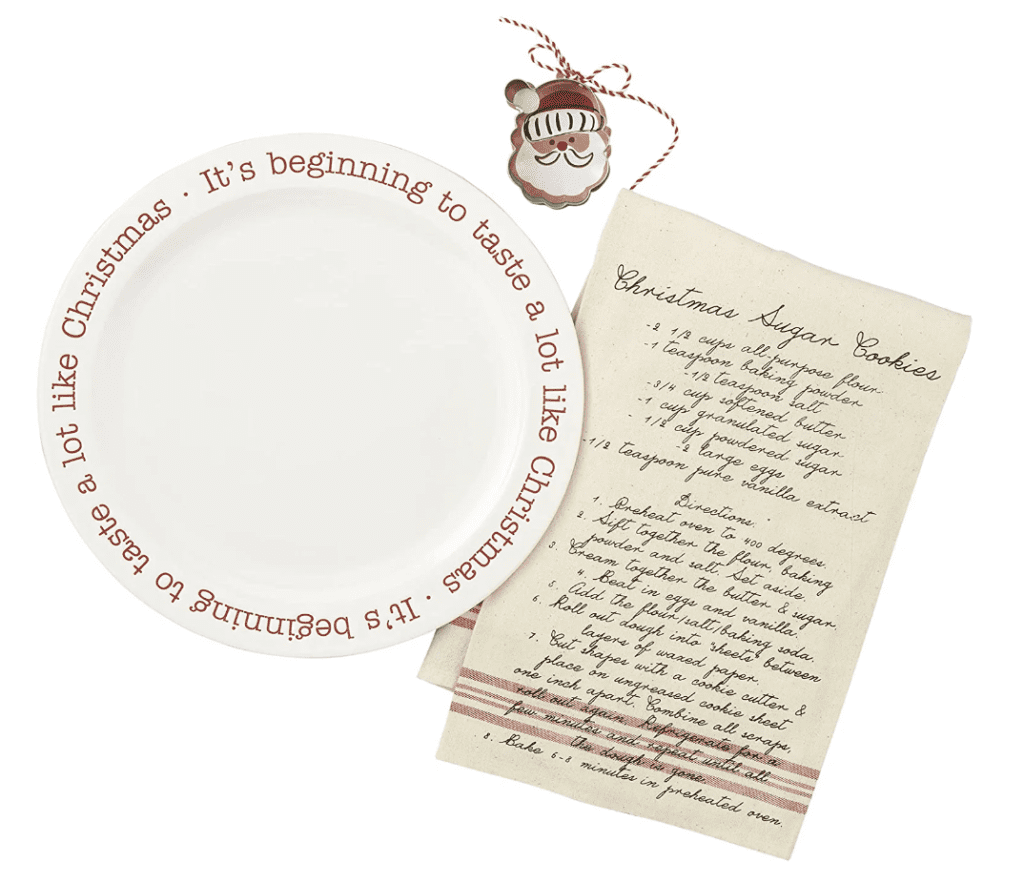 It's beginning to taste a lot like Christmas · It's beginning to taste a lot like Christmas ·
Christmas Sugar Cookies
-2 1/2 cups all-purpose flour
-1 teaspoon baking powder
-1/2 teaspoon salt
-3/4 cup softened butter
-1 cup granulated sugar
-1/2 cup powdered sugar
-2 large eggs
-1/2 teaspoon pure vanilla extract
Directions:
1. Preheat oven to 400 degrees.
2. Sift together the flour, baking
powder and salt. Set aside.
3. Cream together the butter & sugar.
4. Beat in eggs and vanilla.
5. Add the flour/salt/baking soda.
6. Roll out dough into "sheets" between
layers of waxed paper.
7. Cut shapes with a cookie cutter &
place on ungreased cookie sheet
one inch apart. Combine all scraps,
roll out again. Refrigerate for a
few minutes and repeat until all
the dough is gone.
8. Bake 6-8 minutes in preheated oven.